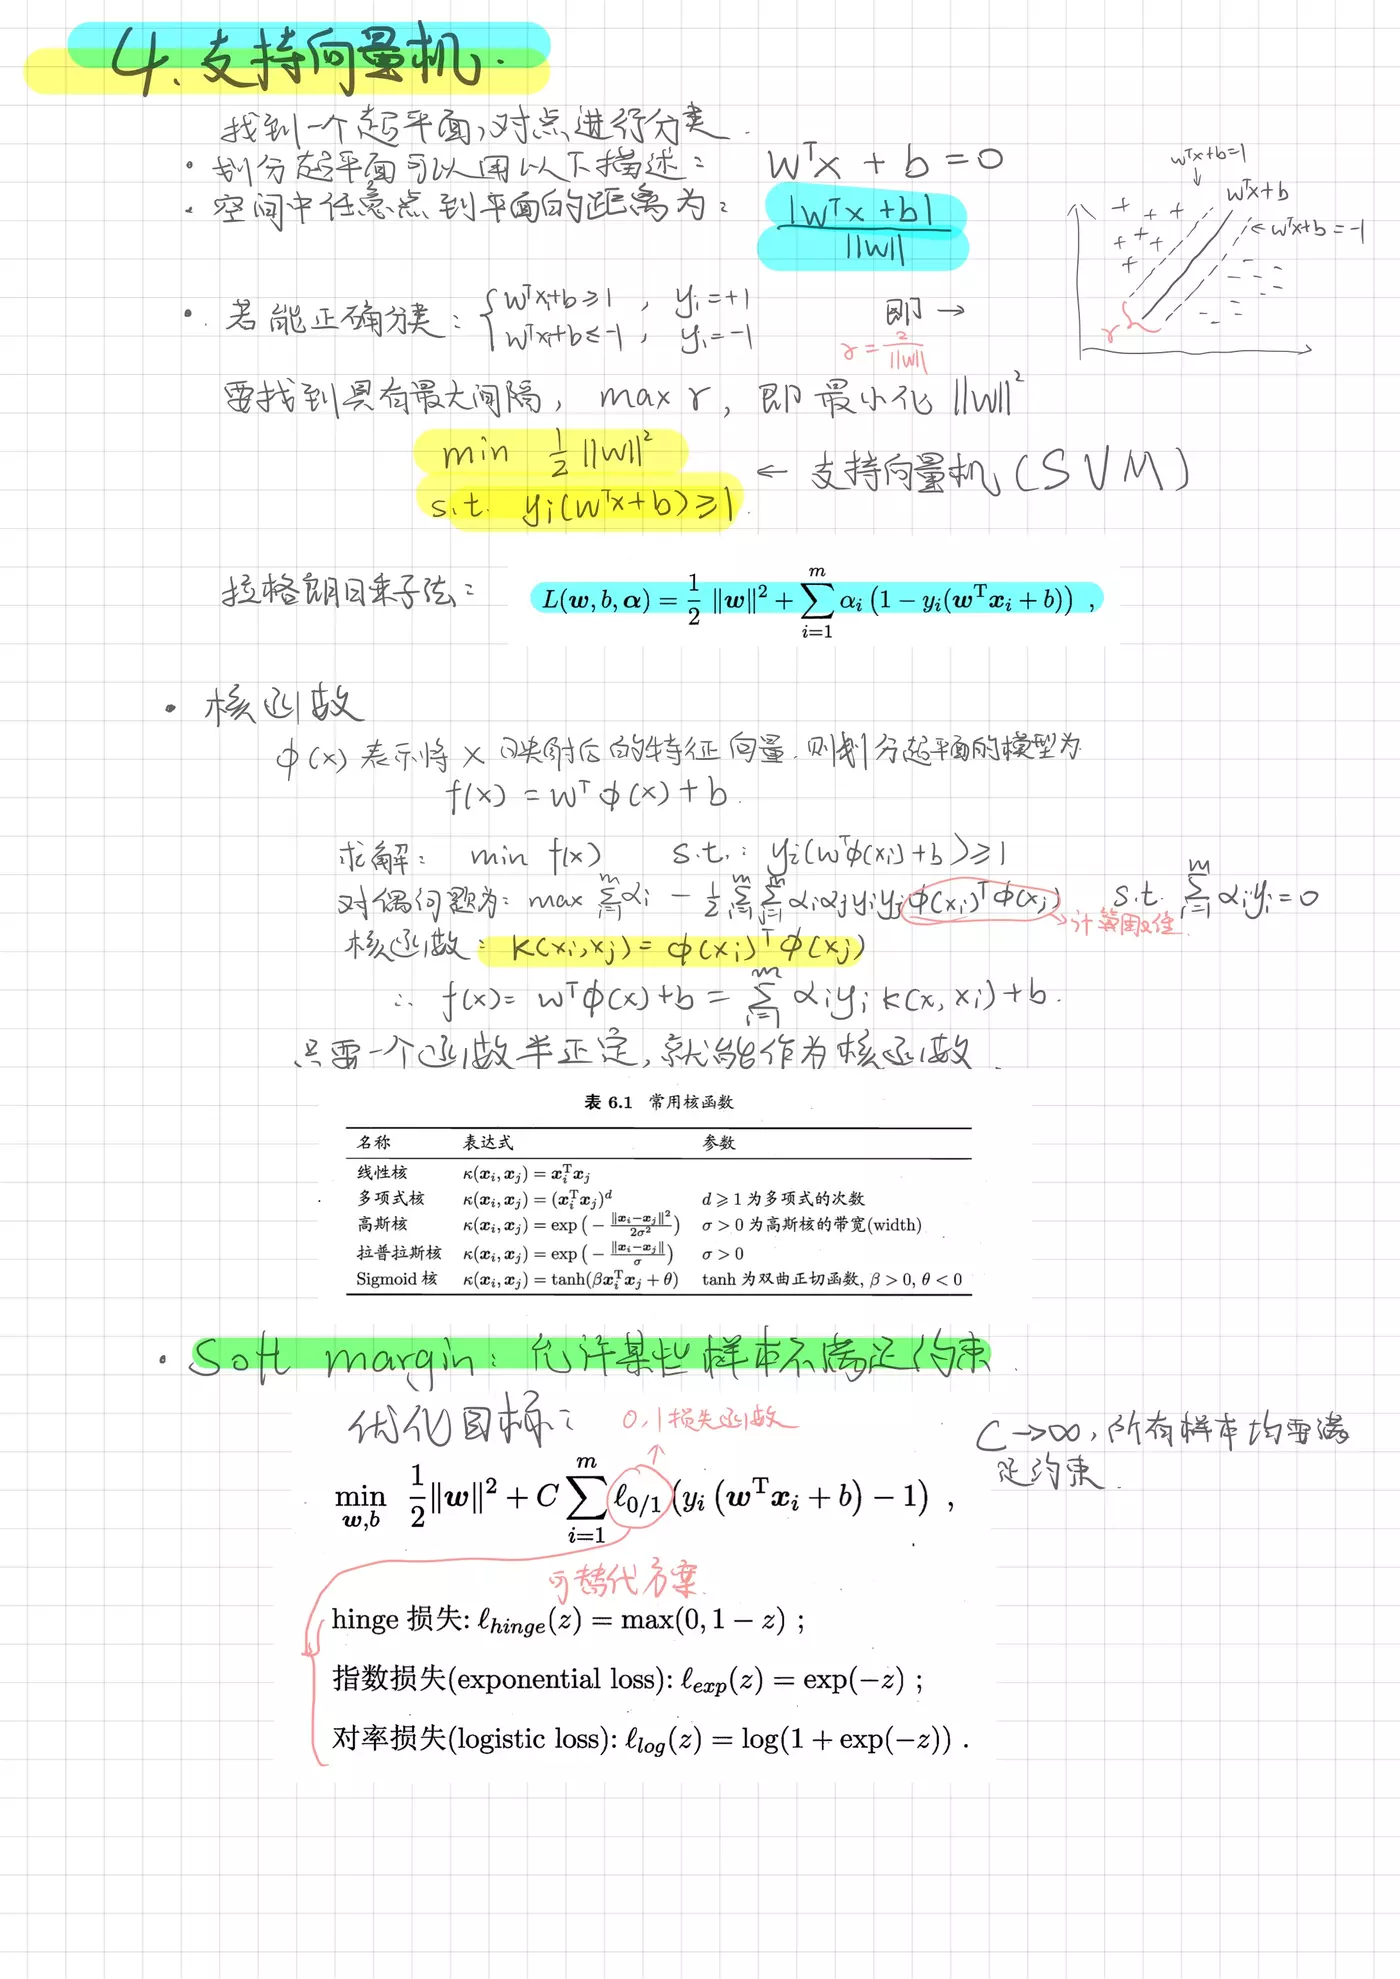 4. 支持向量机.
找到一个超平面,对点进行分类.
· 划分超平面可以用以下描述: wᵀx + b = 0
· 空间中任意点到平面的距离为: |wᵀx + b| / ||w||
wᵀx+b=1
wᵀx+b
← wᵀx+b = -1
r
· 若能正确分类: { wᵀxᵢ+b ≥ 1 , yᵢ=+1
wᵀxᵢ+b ≤ -1 , yᵢ=-1
即 →
r = 2/||w||
要找到具有最大间隔, max r, 即最小化 ||w||²
min ½ ||w||²
s.t. yᵢ(wᵀx+b) ≥ 1
← 支持向量机 (SVM)
拉格朗日乘子法: L(w, b, α) = 1/2 ‖w‖² + ∑_{i=1}^{m} αᵢ (1 − yᵢ(wᵀxᵢ + b)) ,
· 核函数
ϕ(x) 表示将 x 映射后的特征向量. 则划分超平面的模型为
f(x) = wᵀϕ(x) + b.
求解: min f(x) s.t.: yᵢ(wᵀϕ(xᵢ)+b) ≥ 1
对偶问题为: max ∑_{i=1}^{m} αᵢ − ½ ∑_{i=1}^{m} ∑_{j=1}^{m} αᵢαⱼyᵢyⱼ ϕ(xᵢ)ᵀϕ(xⱼ) s.t. ∑_{i=1}^{m} αᵢyᵢ = 0
→ 计算困难
核函数: k(xᵢ,xⱼ) = ϕ(xᵢ)ᵀϕ(xⱼ)
∴ f(x) = wᵀϕ(x)+b = ∑_{i=1}^{m} αᵢyᵢ k(x, xᵢ)+b.
只要一个函数半正定, 就能作为核函数.
表 6.1 常用核函数
名称 表达式 参数
线性核 κ(xᵢ, xⱼ) = xᵢᵀxⱼ
多项式核 κ(xᵢ, xⱼ) = (xᵢᵀxⱼ)ᵈ d ⩾ 1 为多项式的次数
高斯核 κ(xᵢ, xⱼ) = exp (− ‖xᵢ−xⱼ‖² / 2σ²) σ > 0 为高斯核的带宽(width)
拉普拉斯核 κ(xᵢ, xⱼ) = exp (− ‖xᵢ−xⱼ‖ / σ) σ > 0
Sigmoid 核 κ(xᵢ, xⱼ) = tanh(βxᵢᵀxⱼ + θ) tanh 为双曲正切函数, β > 0, θ < 0
· Soft margin: 允许某些样本不满足约束.
优化目标:
0,1损失函数
C→∞, 所有样本均要满
足约束.
min_{w,b} 1/2 ‖w‖² + C ∑_{i=1}^{m} ℓ_{0/1} (yᵢ (wᵀxᵢ + b) − 1) ,
可替代方案.
hinge 损失: ℓ_{hinge}(z) = max(0, 1 − z) ;
指数损失(exponential loss): ℓ_{exp}(z) = exp(−z) ;
对率损失(logistic loss): ℓ_{log}(z) = log(1 + exp(−z)) .